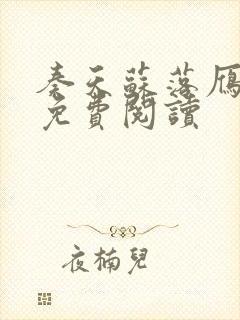 秦天蘇落雁
免費閱讀
夜楠兒